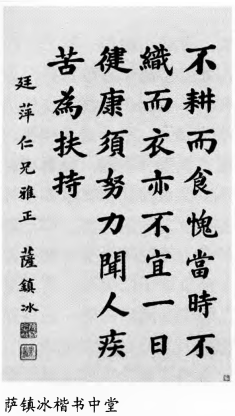 不耕而食愧當時不
織而衣亦不宜一日
健康須努力聞人疾
苦為扶持
廷萍仁兄雅正
薩鎮冰
萨镇冰楷书中堂